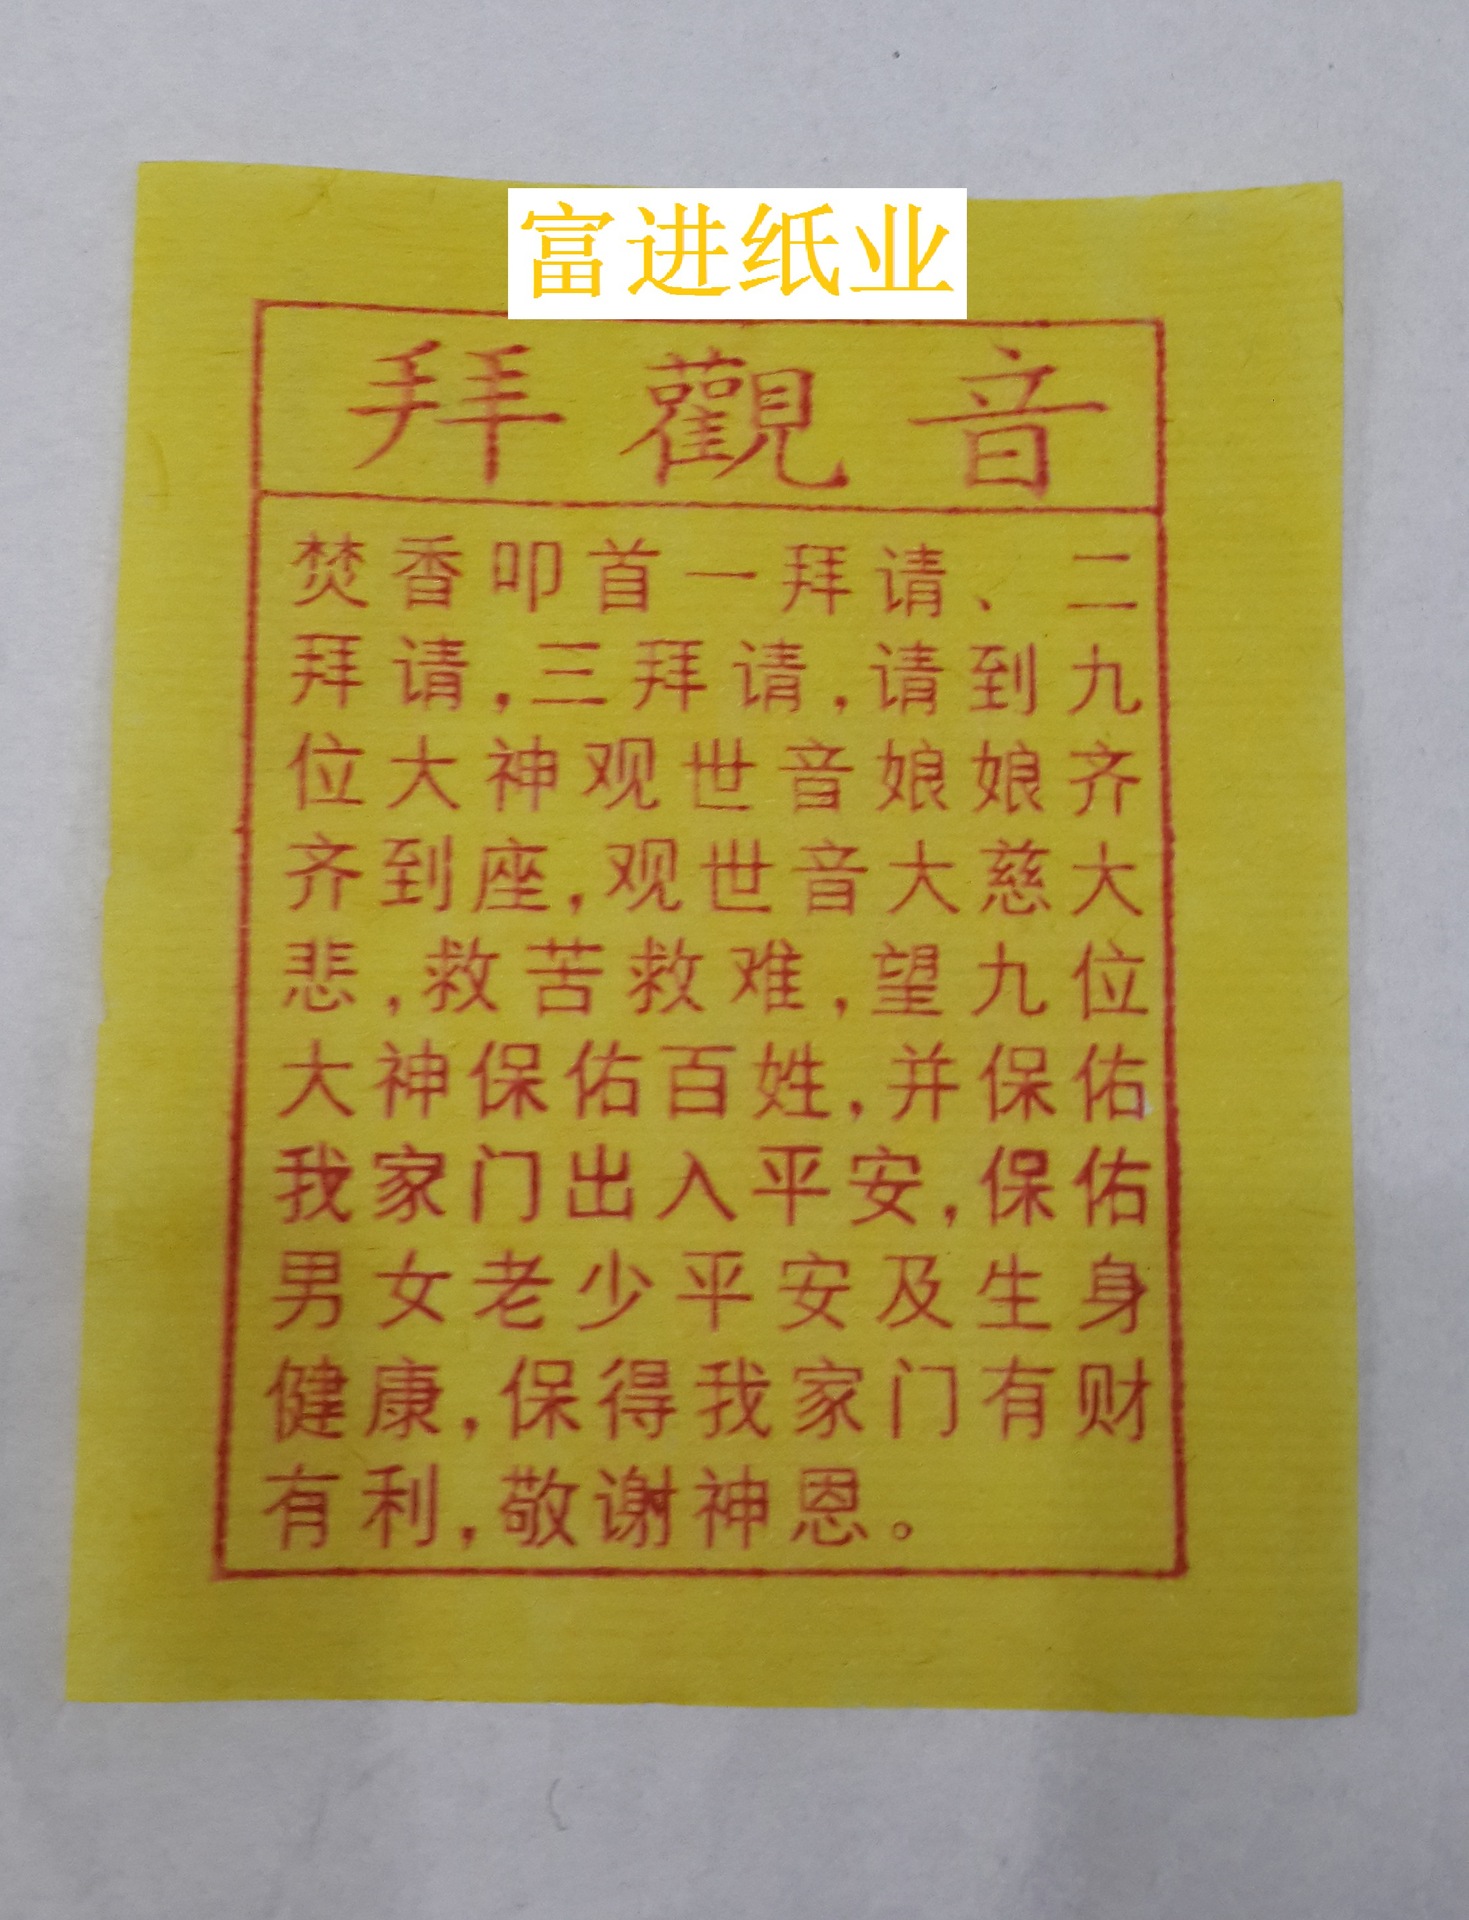 富进纸业
拜觀音
焚香叩首一拜请、二
拜请,三拜请,请到九
位大神观世音娘娘齐
齐到座,观世音大慈大
悲,救苦救难,望九位
大神保佑百姓,并保佑
我家门出入平安,保佑
男女老少平安及生身
健康,保得我家门有财
有利,敬谢神恩。